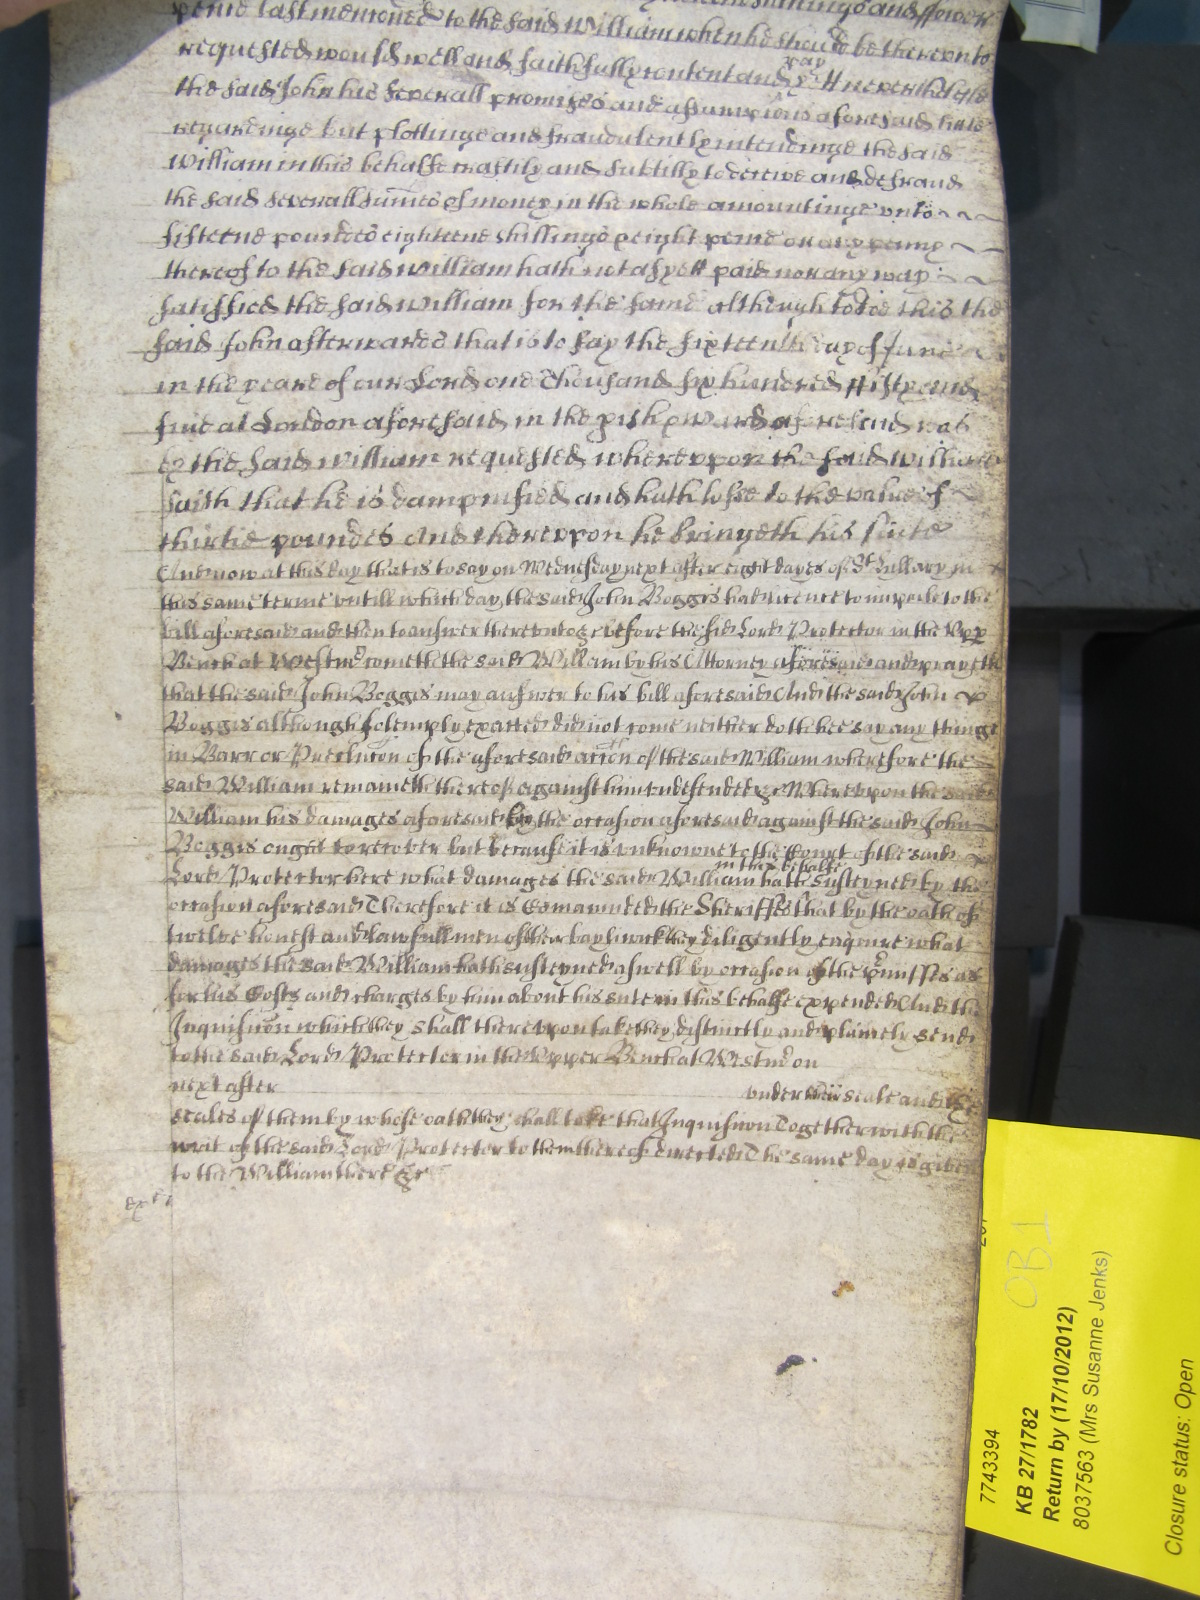 penie last mentioned to the said William when he should be thereunto
requested would well and faithfully content and pay &c Neverthelesse
the said John his severall promises and assumpcions aforesaid little
regardinge but plottinge and fraudulently intendinge the said
William in this behalfe craftily and subtilly to deceive and defraud
the said severall sumes of money in the whole amountinge unto
fifteene poundes eighteene shillings & eight pence or any penny
thereof to the said William hath not as yett paid nor any way
satisfied the said William for the same although to doe this the
said John afterwards that is to say the sixteenth day of June
in the yeare of our Lord one Thousand six hundred fifty and
five at London aforesaid in the pish & ward aforesaid was
by the said William requested whereuppon the said William
saith that he is dampnified and hath losse to the value of
thirtie poundes And thereuppon he bringeth his suite
And now at this day that is to say on Wednesday next after eight dayes of St Hillary in
this same terme untill which day the said John Boggis had licence to imparle to the
bill aforesaid and then to answer thereunto &c before the said Lord Protector in the Upp
Bench at Westmr cometh the said William by his Attorney aforesaid and prayeth
that the said John Boggis may answer to his bill aforesaid And the said John
Boggis although solemply exacted did not come neither doth hee say any thinge
in Barr or Preclucon of the aforesaid accon of the said William wherefore the
said William remaineth thereof against him undefended &c Whereupon the said
William his damages aforesaid by the occasion aforesaid against the said John
Boggis ought to recover but because it is unknowne to the Court of the said
Lord Protector here what damages the said William in this behalfe hath susteyned by the
occasion aforesaid Therefore it is Comaunded the Sheriffes that by the oath of
twelve honest and lawfull men of their bayliwick they diligently enquire what
damages the said William hath susteyned aswell by occasion of the pmisses as
for his Costs and charges by him about his sute in this behalfe expended And the
Inquisicon which they shall thereupon take they distinctly and plainely send
to the said Lord Protector in the Upper Bench at Westmr on
next after under their seale and the
seales of them by whose oath they shall take that Inquisicon Together with the
writ of the said Lord Protector to them thereof directed The same day is given
to the William there &c
7743394
KB 27/1782
Return by (17/10/2012)
8037563 (Mrs Susanne Jenks)
Closure status: Open
OB1